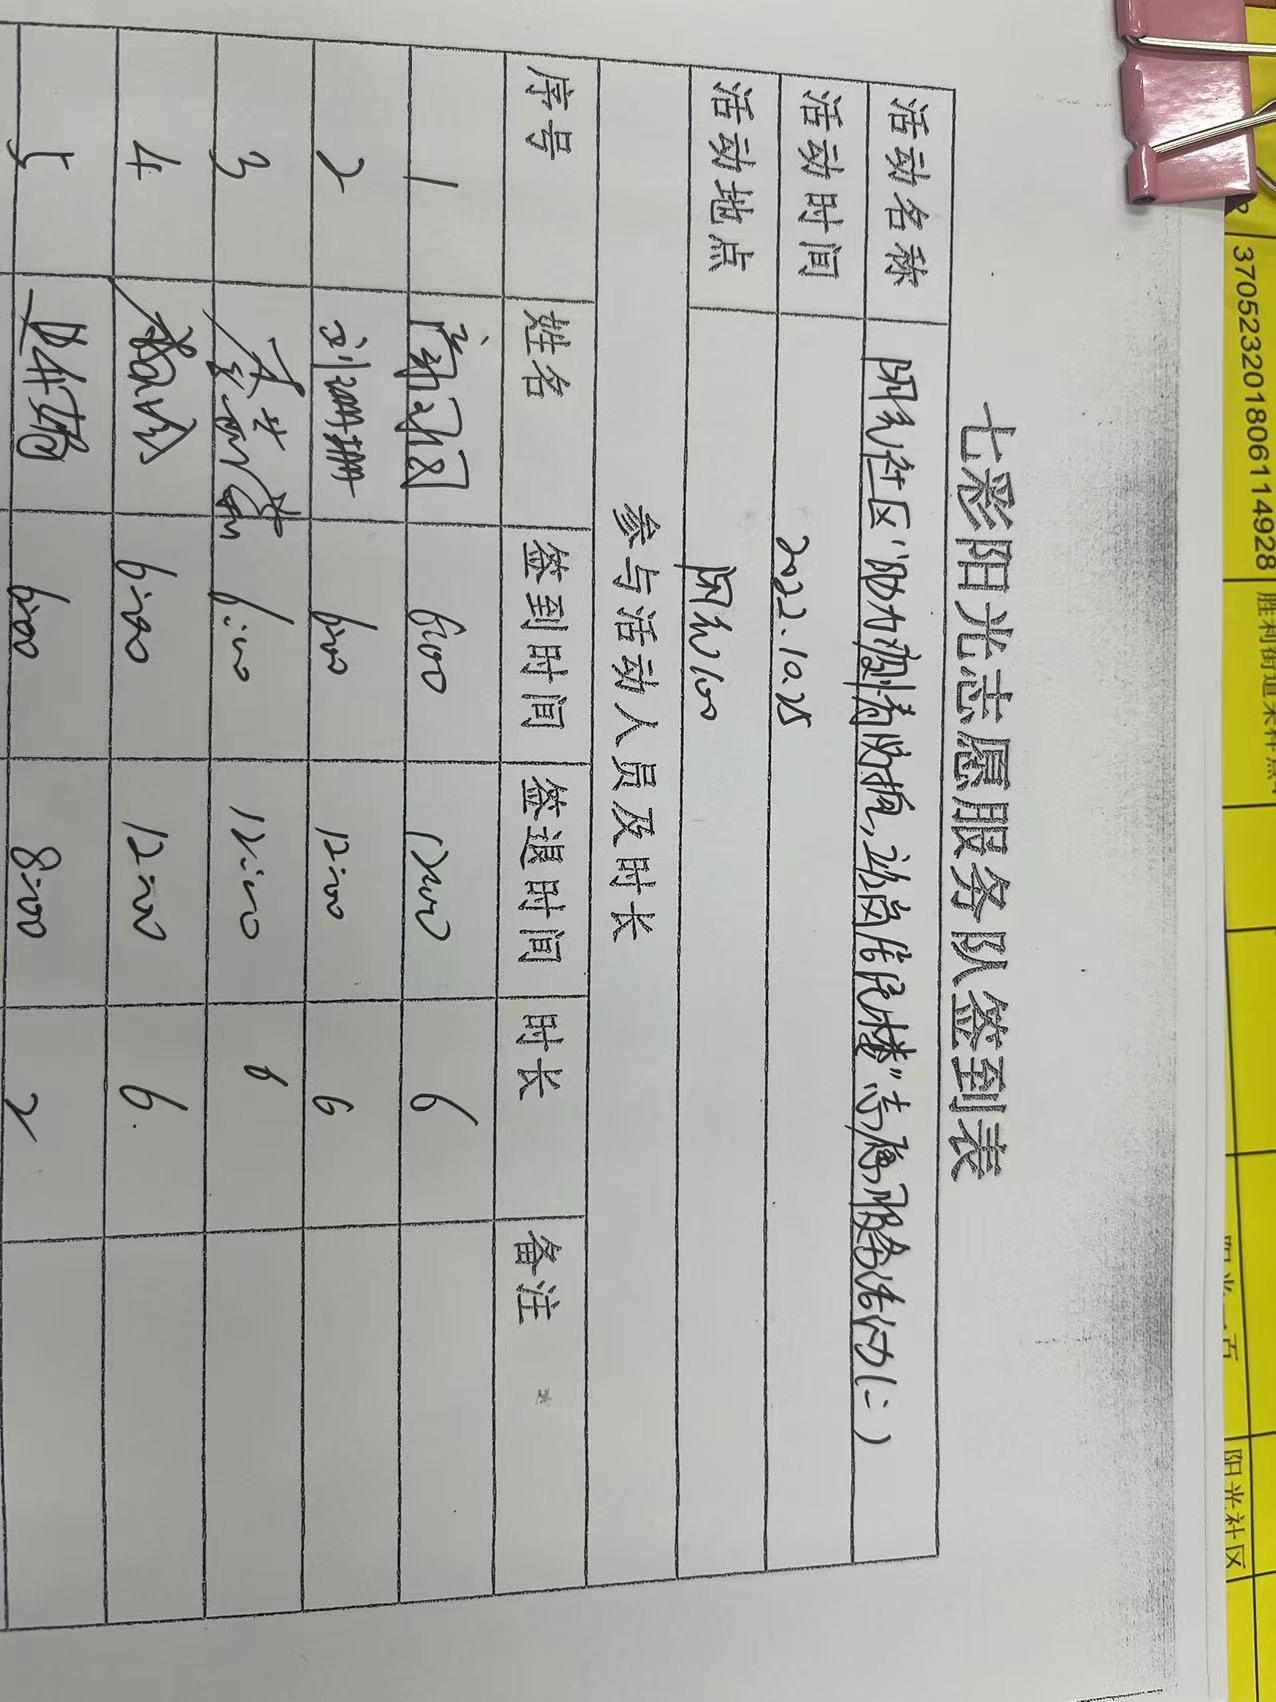 370523201806114928 胜利街道采样点
阳光一百
阳光社区
七彩阳光志愿服务队签到表
活动名称 阳光社区“助力疫情防控,站岗居民楼”志愿服务活动(二)
活动时间 2022.10.25
活动地点 阳光100
参与活动人员及时长
序号 姓名 签到时间 签退时间 时长 备注
1 6:00 12:00 6
2 刘珊珊 6:00 12:00 6
3 6:00 12:00 6
4 6:00 12:00 6
5 6:00 8:00 2